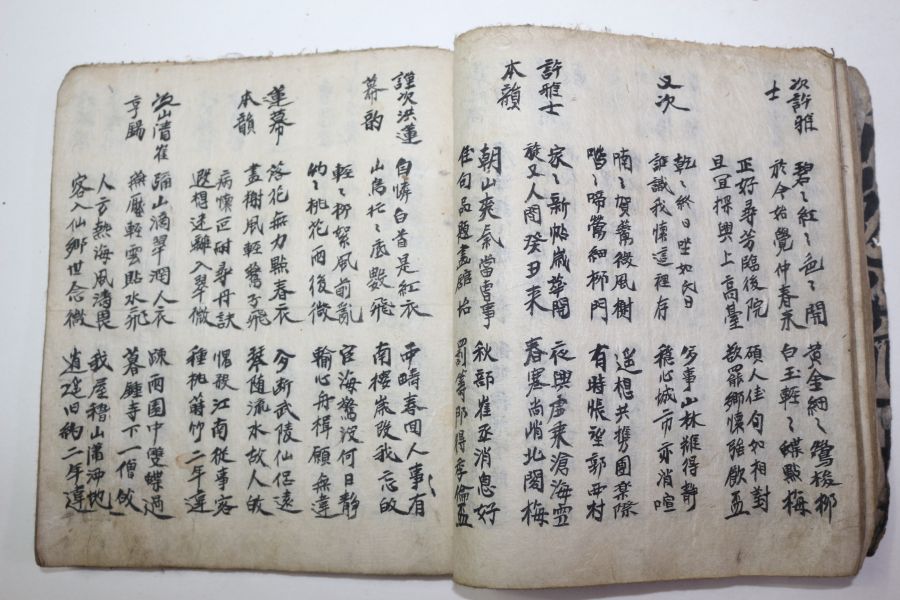 次許雅士
碧〻紅〻色〻開 黃金細〻鶯梭柳
於今始覺仲春來 白玉輕〻蝶點梅
正好尋芳臨後院 碩人佳句如相對
且宜探興上高臺 欲罷鄉懷強飮盃
又次
乾〻終日坐如 多事山林難得靜
誰識我懷這裡存 穩心城市亦消喧
喃〻賀燕微風樹 遙想共携園
喈〻啼鶯細柳門 有時悵望郭西村
許雅士本韻
家〻新帖歲華開 夜興虛乘滄海雪
旋又人間癸丑來 春寒尚悄北閣梅
朝山爽氣當曹事 秋部崔丞消息好
佳句品題畵舘坮 罰籌那得季倫盃
謹次洪蓮幕韵
自憐白首是紅衣 西疇春回人事有
山鳥忙〻底數飛 南樓歲改我忘歸
輕〻柳絮風前亂 宦海驚沒何日靜
灼〻桃花雨後微 輸心舟楫願無違
蓮幕本韻
落花無力點春衣 今斷武陵仙侶遠
畵樹風輕鶯子飛 琴随流水故人歸
病懷叵耐尋丹訣 江南從事客
遐想迷離入翠微 種桃蒔竹二年違
次山淸崔亨錫
踰山滴翠潤人衣 疎雨園中雙蝶過
無壓輕雲貼水飛 暮鍾寺下一僧歸
人方熱海風濤畏 我屋稽山瀟洒地
客入仙鄉世念微 逍遙旧約二年違